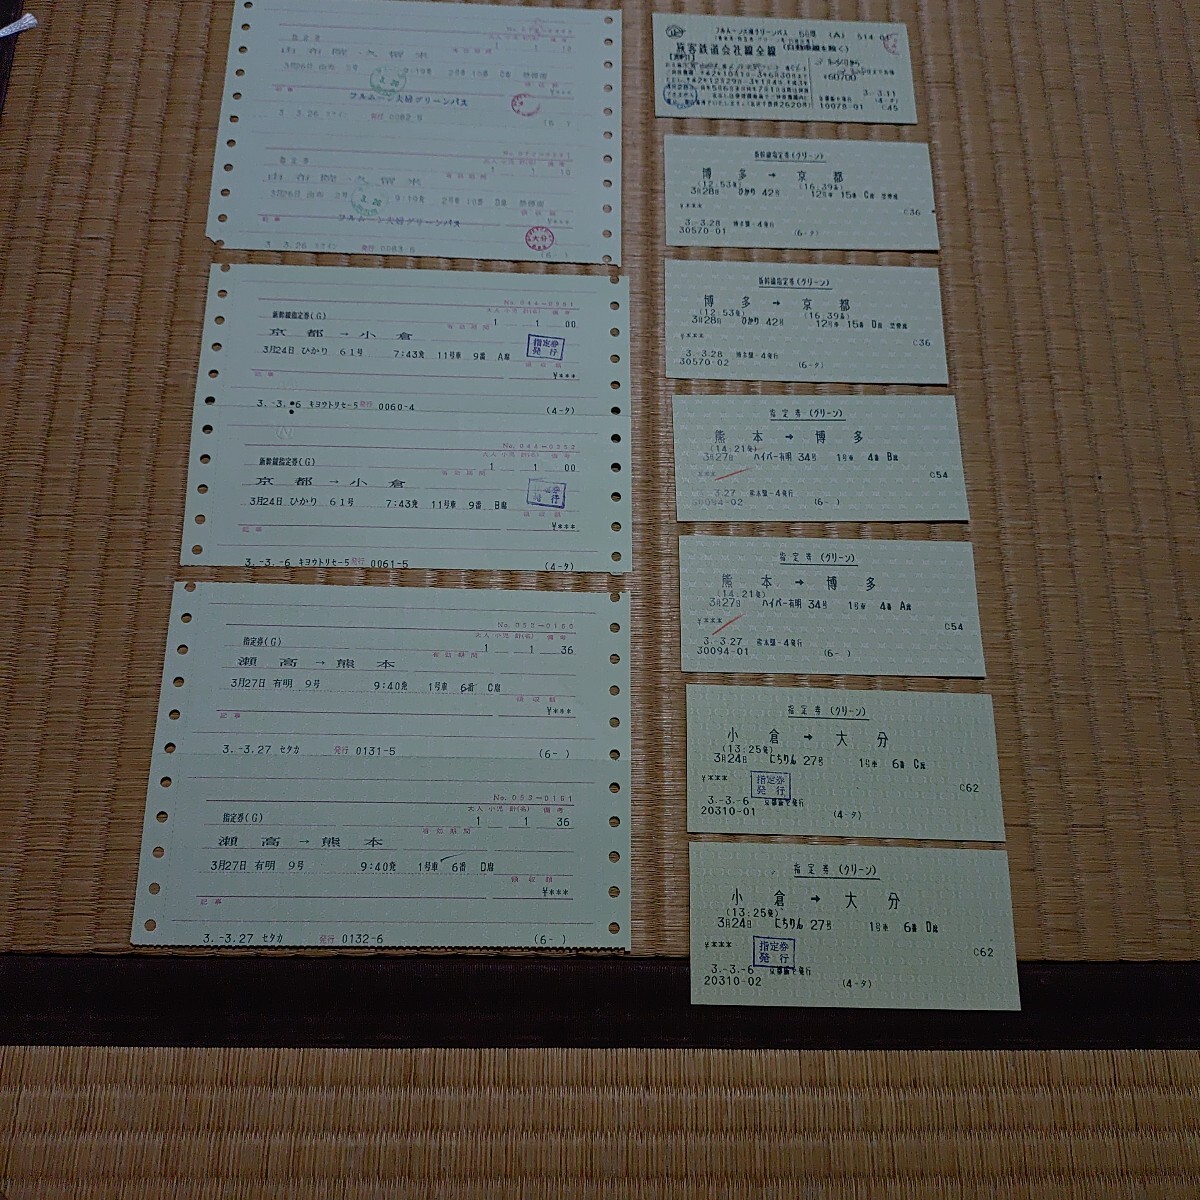 指定券
由布院→久留米
3月26日 由布 2号 9:10発 2号車 10番 C席 禁煙席
記事
フルムーン夫婦グリーンパス
発行 0082-5
(6- )
指定券
由布院→久留米
3月26日 由布 2号 9:10発 2号車 10番 D席 禁煙席
記事
フルムーン夫婦グリーンパス
大分
発行 0083-6
(6- )
No. 044-0351
大人 小児 計(名) 備考
新幹線指定券(G)
有効期間
1 1 00
京都→小倉
指定券
発行
3月24日 ひかり 61号 7:43発 11号車 9番 A席
領収額
記事
¥***
3.-3.-6 キヨウトリセ-5 発行 0060-4 (4-タ)
No. 044-0352
大人 小児 計(名) 備考
新幹線指定券(G)
有効期間
1 1 00
京都→小倉
3月24日 ひかり 61号 7:43発 11号車 9番 B席
領収額
記事
¥***
3.-3.-6 キヨウトリセ-5 発行 0061-5 (4-タ)
No. 053-0160
大人 小児 計(名) 備考
指定券(G)
有効期間
1 1 36
瀬高→熊本
3月27日 有明 9号 9:40発 1号車 6番 C席
領収額
¥***
記事
3.-3.27 セタカ 発行 0131-5 (6- )
No. 053-0161
大人 小児 計(名) 備考
指定券(G)
有効期間
1 1 36
瀬高→熊本
3月27日 有明 9号 9:40発 1号車 6番 D席
領収額
¥***
記事
3.-3.27 セタカ 発行 0132-6 (6- )
フルムーン夫婦グリーンパス 5日間 (A) 514-01
旅客鉄道会社線全線 (自動車線を除く)
¥60700
3.-3.11
(4-タ)
10078-01 C45
新幹線指定券(グリーン)
博多→京都
(12:53発) (16:39着)
3月28日 ひかり 42号 12号車 15番 C席 禁煙席
¥***
C36
3.-3.28 博多駅-4発行
30570-01 (6-タ)
新幹線指定券(グリーン)
博多→京都
(12:53発) (16:39着)
3月28日 ひかり 42号 12号車 15番 D席 禁煙席
¥***
C36
3.-3.28 博多駅-4発行
30570-02 (6-タ)
指定券(グリーン)
熊本→博多
(14:21発)
3月27日 ハイパー有明 34号 1号車 4番 B席
¥***
C54
3.-3.27 熊本駅-4発行
30094-02 (6- )
指定券(グリーン)
熊本→博多
(14:21発)
3月27日 ハイパー有明 34号 1号車 4番 A席
¥***
C54
3.-3.27 熊本駅-4発行
30094-01 (6- )
指定券(グリーン)
小倉→大分
(13:25発)
3月24日 にちりん 27号 1号車 6番 C席
¥***
指定券
発行
C62
3.-3.-6
20310-01 (4-タ)
指定券(グリーン)
小倉→大分
(13:25発)
3月24日 にちりん 27号 1号車 6番 D席
¥***
指定券
発行
C62
3.-3.-6
20310-02 (4-タ)